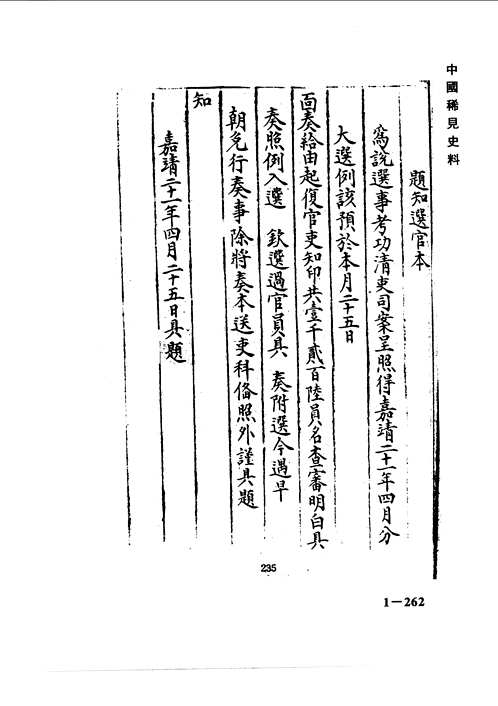 中國稀見史料
題知選官本
為說選事考功清吏司案呈照得嘉靖二十一年四月分
大選例該預於本月二十五日
面奏給由起復官吏知印共壹千貳百陸員名查審明白具
奏照例入選 欽選過官員具 奏附選今遇早
朝免行奏事除將奏本送吏科俻照外謹具題
知
嘉靖二十一年四月二十五日具題
235
1-262